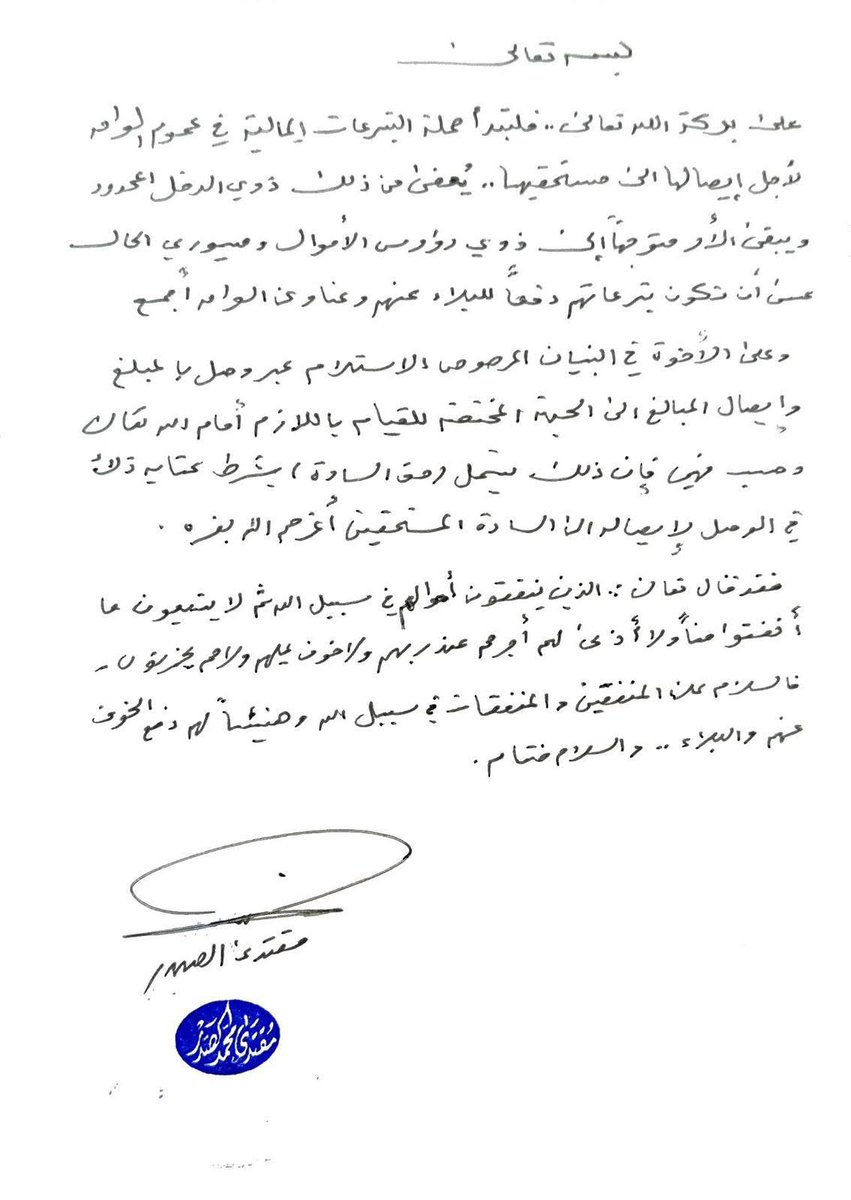 بسمه تعالى
على بركة الله تعالى.. فلتبدأ حملة التبرعات المالية في عموم العراق
لأجل إيصالها الى مستحقيها.. يُعفى من ذلك ذوي الدخل المحدود
ويبقى الأمر متوجهاً إلى ذوي رؤوس الأموال وميسوري الحال
عسى أن تكون تبرعاتهم دفعاً للبلاء عنهم وعنا وعن العراق أجمع
وعلى الأخوة في البنيان المرصوص الاستلام عبر وصل بالمبلغ
وإيصال المبالغ الى الجهة المختصة للقيام باللازم أمام الله تعالى
وحسب فهمي فإن ذلك يشمل (حق السادة) بشرط كتابة ذلك
في الوصل لإيصاله الى السادة المستحقين أعزهم الله بعزه .
فقد قال تعالى : الذين ينفقون أموالهم في سبيل الله ثم لا يتبعون ما
أنفقوا مناً ولا أذى لهم أجرهم عند ربهم ولا خوف عليهم ولا هم يحزنون .
فالسلام على المنفقين والمنفقات في سبيل الله وهنيئاً لهم دفع الخوف
عنهم والبلاء .. والسلام ختام .
مقتدى الصدر
مقتدى محمد الصدر